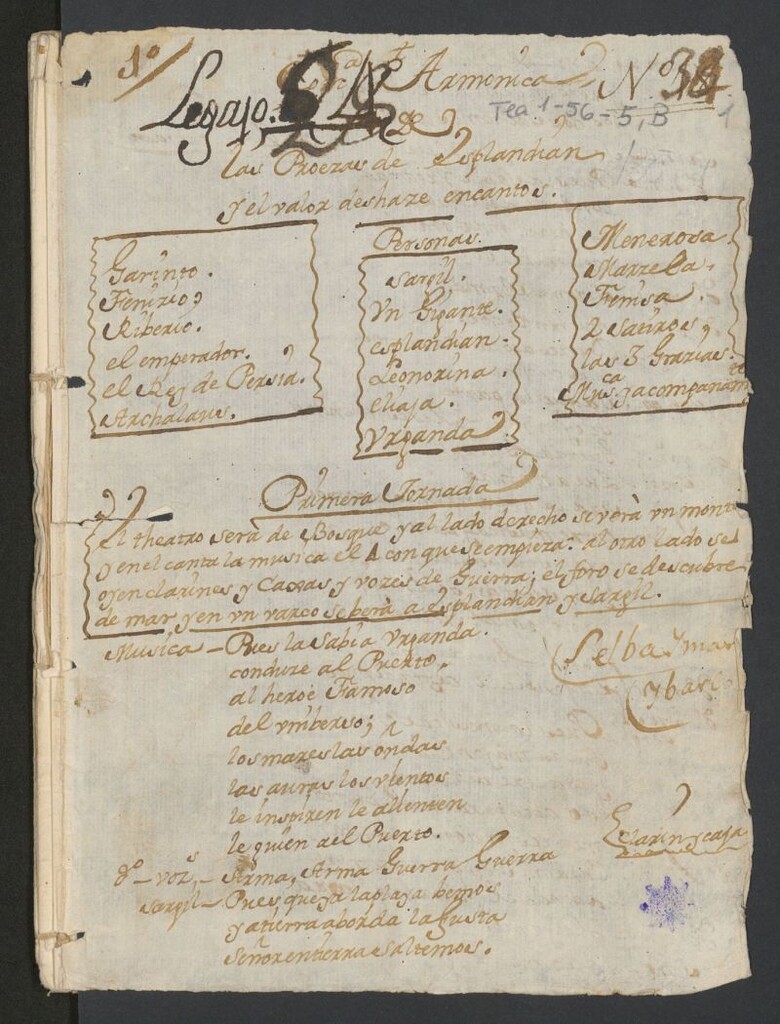 1º
Comedia Armonica Nº 34
Legajo.
Tea 1-56-5, B
1
las Proezas de Esplandian
y el valor deshaze encantos.
Personas.
Garinto.
Fenirio,
Riberio.
el emperador.
el Rey de Persia.
Archalaus.
sargil.
Un Gigante.
esplandian.
Leonorina.
eliaja.
Urganda
Menerosa.
Marzela.
Fenisa.
2 satiros,
las 3 Grazias.
Musca y acompañamto
Primera Jornada
El theatro será de Bosque y al lado derecho se verà vn monte
y en el canta la musica el 4 con que se empieza: al otro lado se
oyen clarines y Caxas y vozes de Guerra; el foro se descubre
de mar, y en vn varco se berà a Esplandian y sargil.
Musica - Pues la sabia Urganda.
conduze al Puerto,
al heroe Famoso
del vniberso;
los mares las ôndas
las auras los vientos
le inspiren le alienten
le guien al Puerto.
Selba y mar
y barco
Clarin y caja
dº - vozs, - Arma, Arma Guerra Guerra
sargil - Pues que ya la plaja bemos
y a tierra aborda la fusta
señor en tierra saltemos.